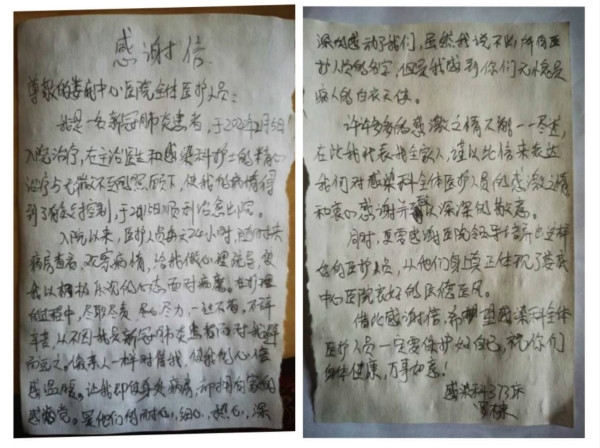 感谢信
尊敬的娄底中心医院全体医护人员:
我是一名新冠肺炎患者,于2020年2月5日
入院治疗,在主治医生和感染科护士的精心
治疗与无微不至的照顾下,使我的病情得
到了有效控制,于2月15日顺利治愈出院。
入院以来,医护人员每天24小时,随时来
病房查房,观察病情,给我做心理疏导,使
我以积极乐观的心态面对病魔。在护理
的过程中,尽职尽责,尽心尽力,一丝不苟,不辞
辛苦,从不因我是新冠肺炎患者而对我避
而远之。像亲人一样对待我,使我内心倍
感温暖。让我即使身处病房,却时刻有家的
感觉。是他们的耐心,细心,热心,深
深的感动了我们,虽然我说不出所有医
护人员的名字,但是我感到你们无愧是
病人的白衣天使。
许许多多的感激之情不能一一尽述,
在此我代表我全家人,谨以此信来表达
我们对感染科全体医护人员的感激之情
和衷心感谢并致以深深的敬意。
同时,更要感谢医院领导培养出这样
好的医护人员,从他们身上真正体现了娄底
中心医院良好的医德医风。
借此感谢信,希望感染科全体
医护人员一定要保护好自己,祝你们
身体健康,万事如意!
感染科373床